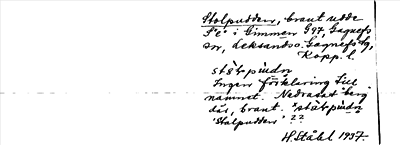 Stolpudden, brant udde
S°e° i Gimmen G97, Gagnefs
sn, Leksands o. Gagnefs tg,
Kopp. l.
stå̀tpùdn
Ingen förklaring till
namnet. Nedrasat berg
där, brant. "stå̀tpùdn
'Stolpudden' ??
H. Ståhl 1937.